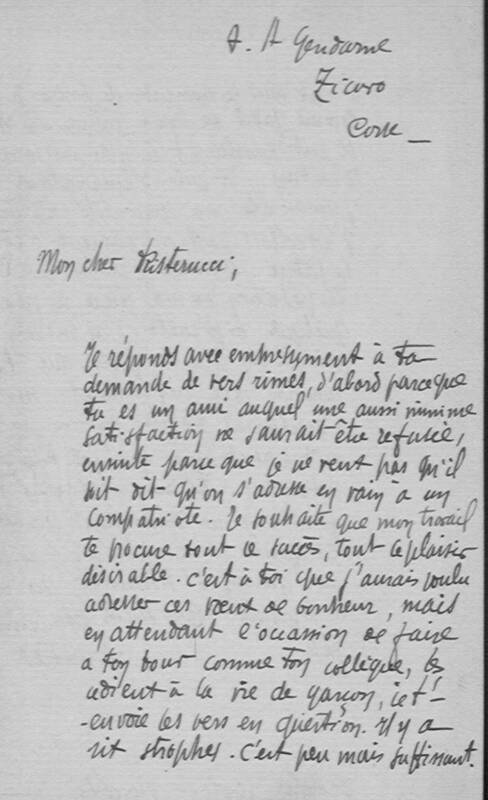 A. A Gendarme
Zicavo
Corse _
Mon cher Pisterucci,
Je réponds avec empressement à ta
demande de vers rimés, d'abord parce que
tu es un ami auquel une aussi minime
satisfaction ne saurait être refusée,
ensuite parce que je ne veut pas qu'il
soit dit qu'on s'adresse en vain à un
compatriote. Je souhaite que mon travail
te procure tout le succès, tout le plaisir
désirable. c'est à toi que j'aurais voulu
adresser ces vœux de bonheur, mais
en attendant l'occasion de faire
a ton tour comme ton collègue, les
adieux à la vie de garçon, je t'-
-envoie les vers en question. Il y a
sit strophes. C'est peu mais suffisant.